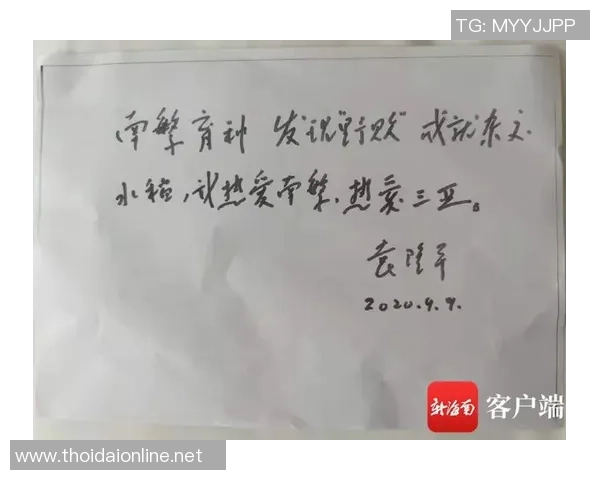 TG: MYYJJPP
南繁育种 发现"野败" 成就杂交
水稻，我热爱南繁，热爱三亚。
袁隆平
2020.4.9.
新海南 客户端
www.thoidaionline.net